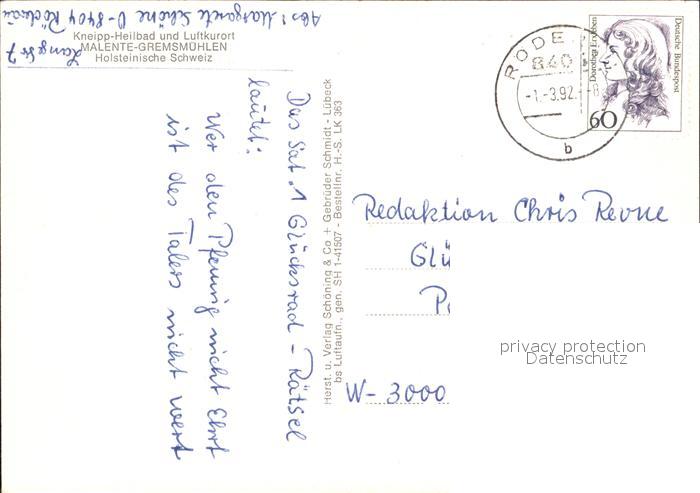 Kneipp-Heilbad und Luftkurort
MALENTE-GREMSMÜHLEN
Holsteinische Schweiz
Abs! Margarete Schöne O-8404
Lange Str 7
Das Sat.1 Glücksrad-Rätsel
lautet:
Wer den Pfennig nicht Ehrt
ist des Talers nicht wert
Herst. u. Verlag Schöning & Co + Gebrüder Schmidt - Lübeck
bs Luftaufn., gen. SH 1-41507 - Bestellnr. H.-S. LK 363
RÖDE
840
-1.-3.92.-8
b
Dorothea Erxleben
Deutsche Bundespost
60
Redaktion Chris Revue
Glü
W-3000
privacy protection
Datenschutz